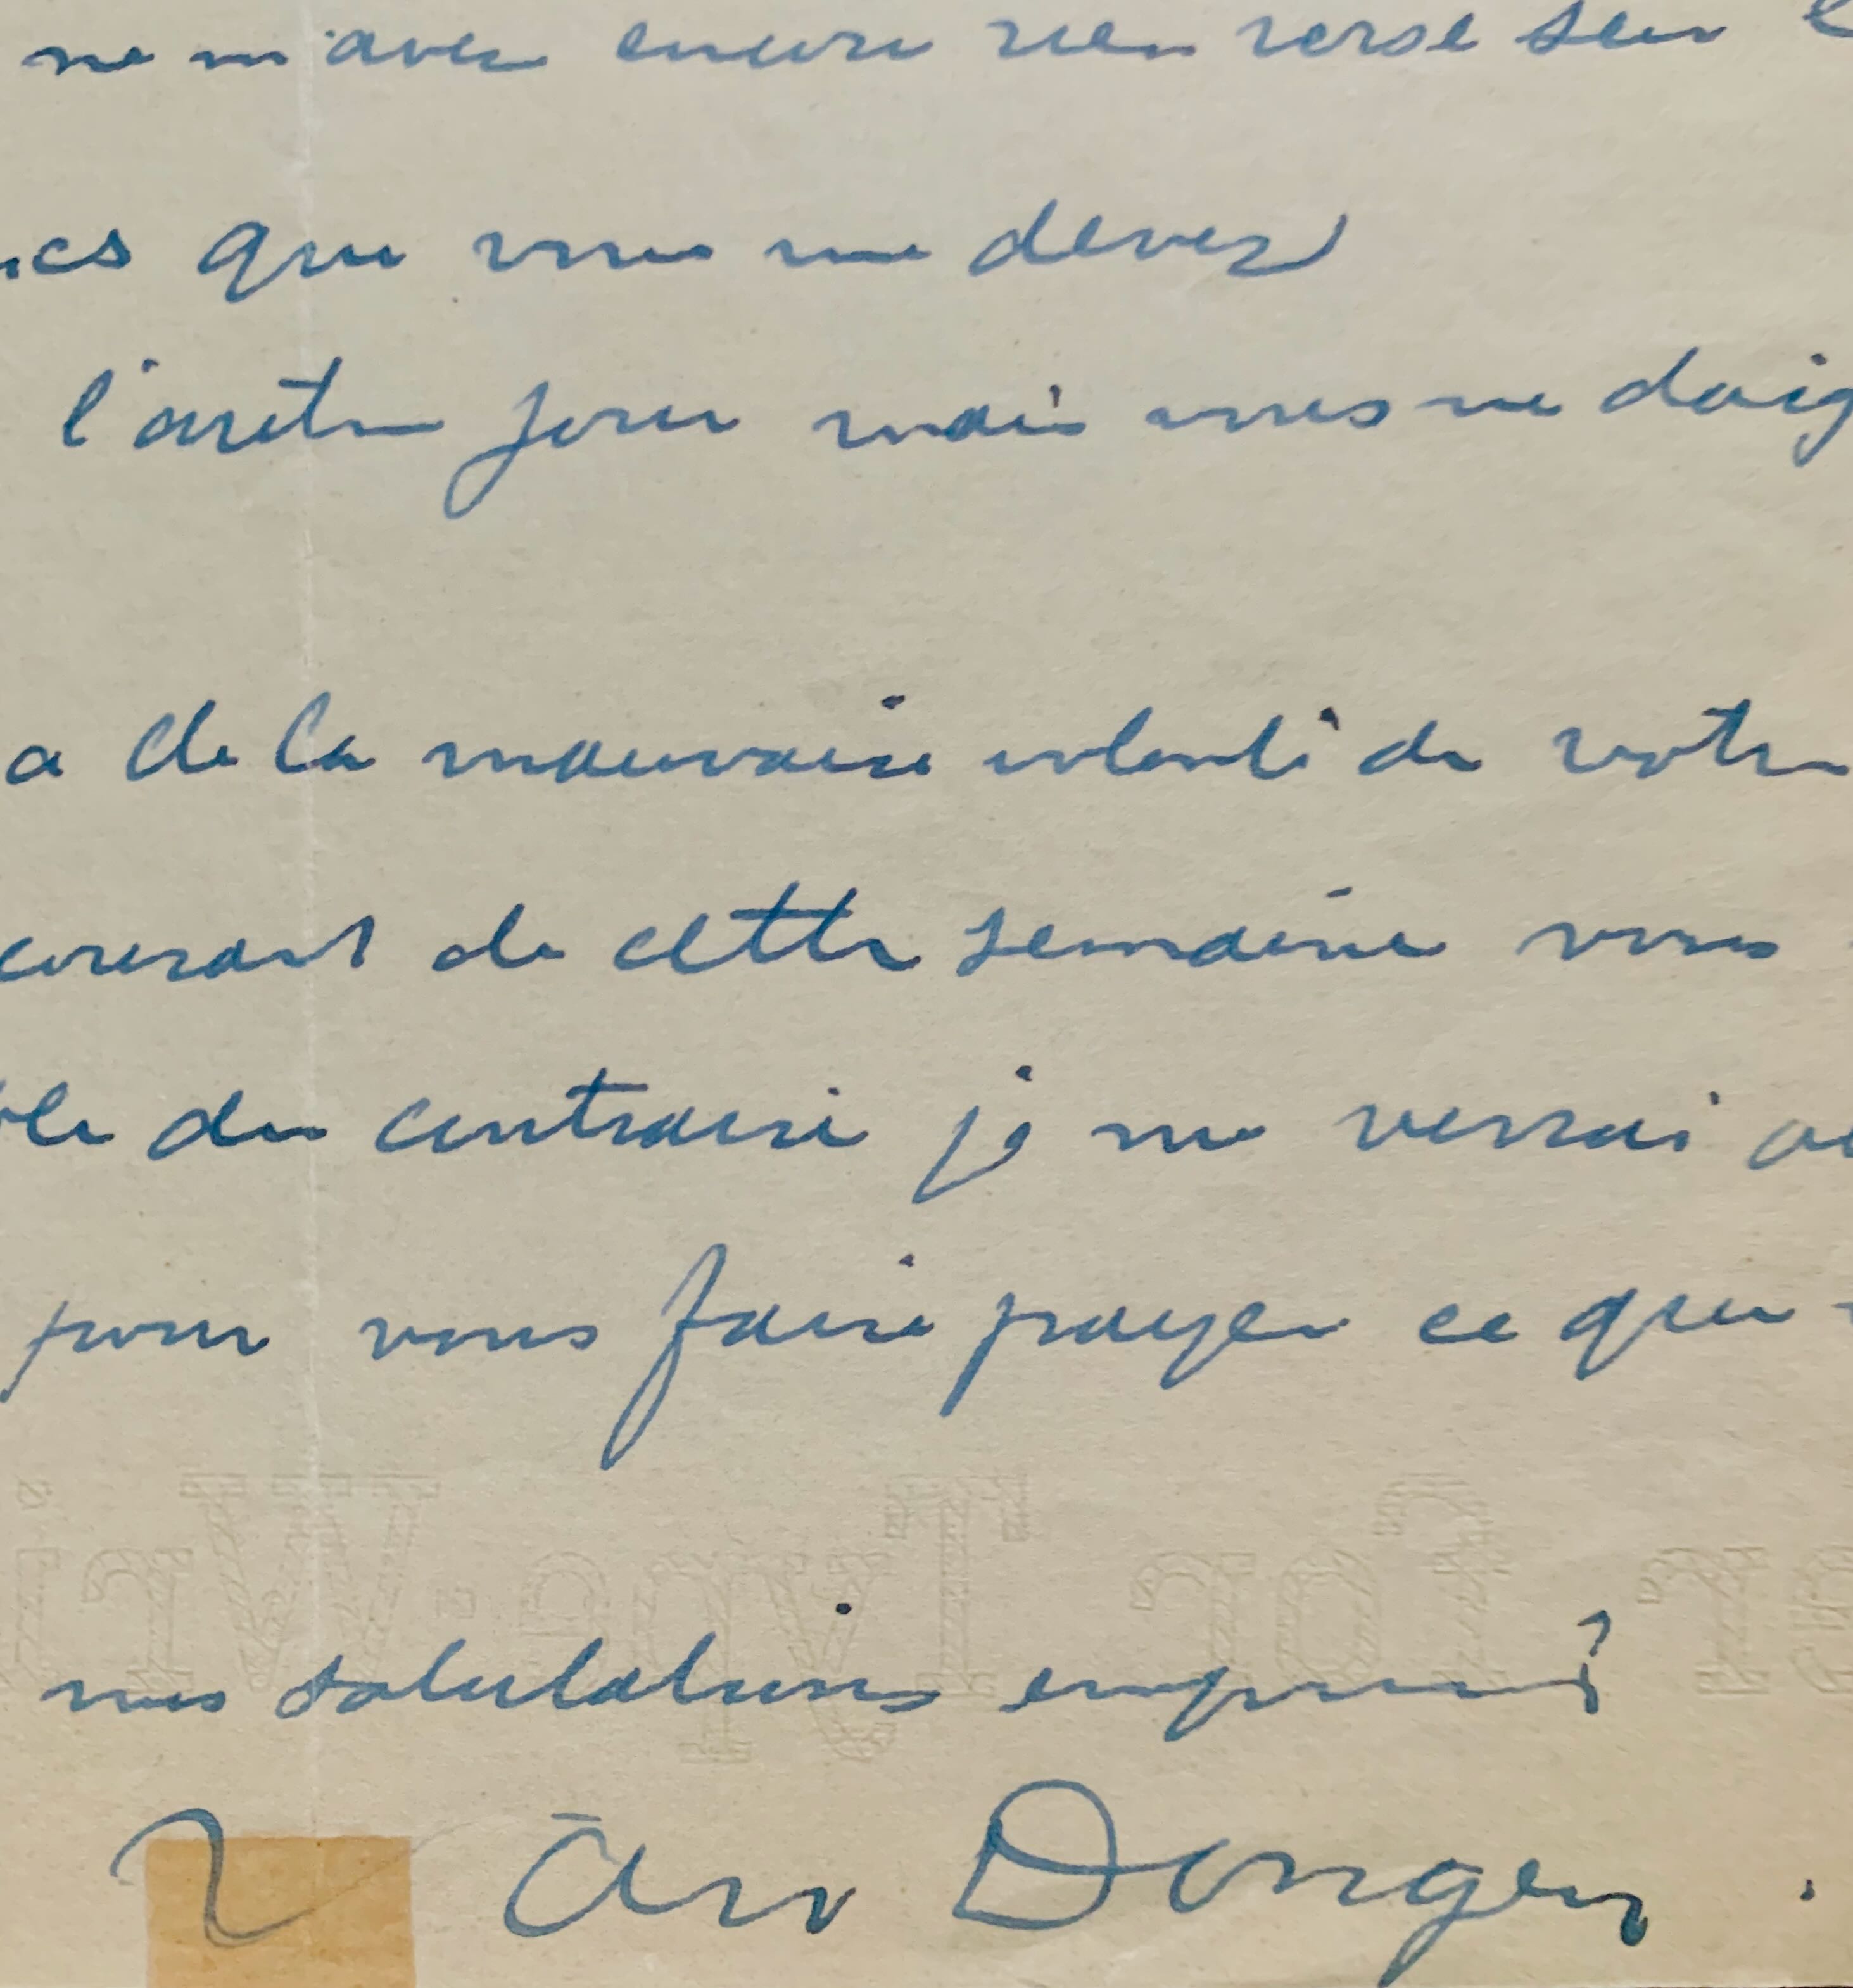 ne m'avez encore rien versé sur
que vous me devez
l'autre jour mais vous ne daig
a de la mauvaise volonté de votre
courant de cette semaine vous
du contraire je me verrai
pour vous faire payer ce que
mes salutations
Van Dongen.